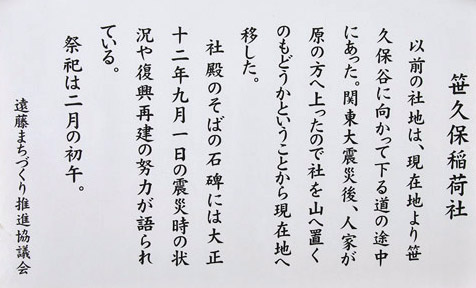 笹久保稲荷社
以前の社地は、現在地より笹
久保谷に向かって下る道の途中
にあった。関東大震災後、人家が
原の方へ上ったので社を山へ置く
のもどうかということから現在地へ
移した。
社殿のそばの石碑には大正
十二年九月一日の震災時の状
況や復興再建の努力が語られ
ている。
祭祀は二月の初午。
遠藤まちづくり推進協議会